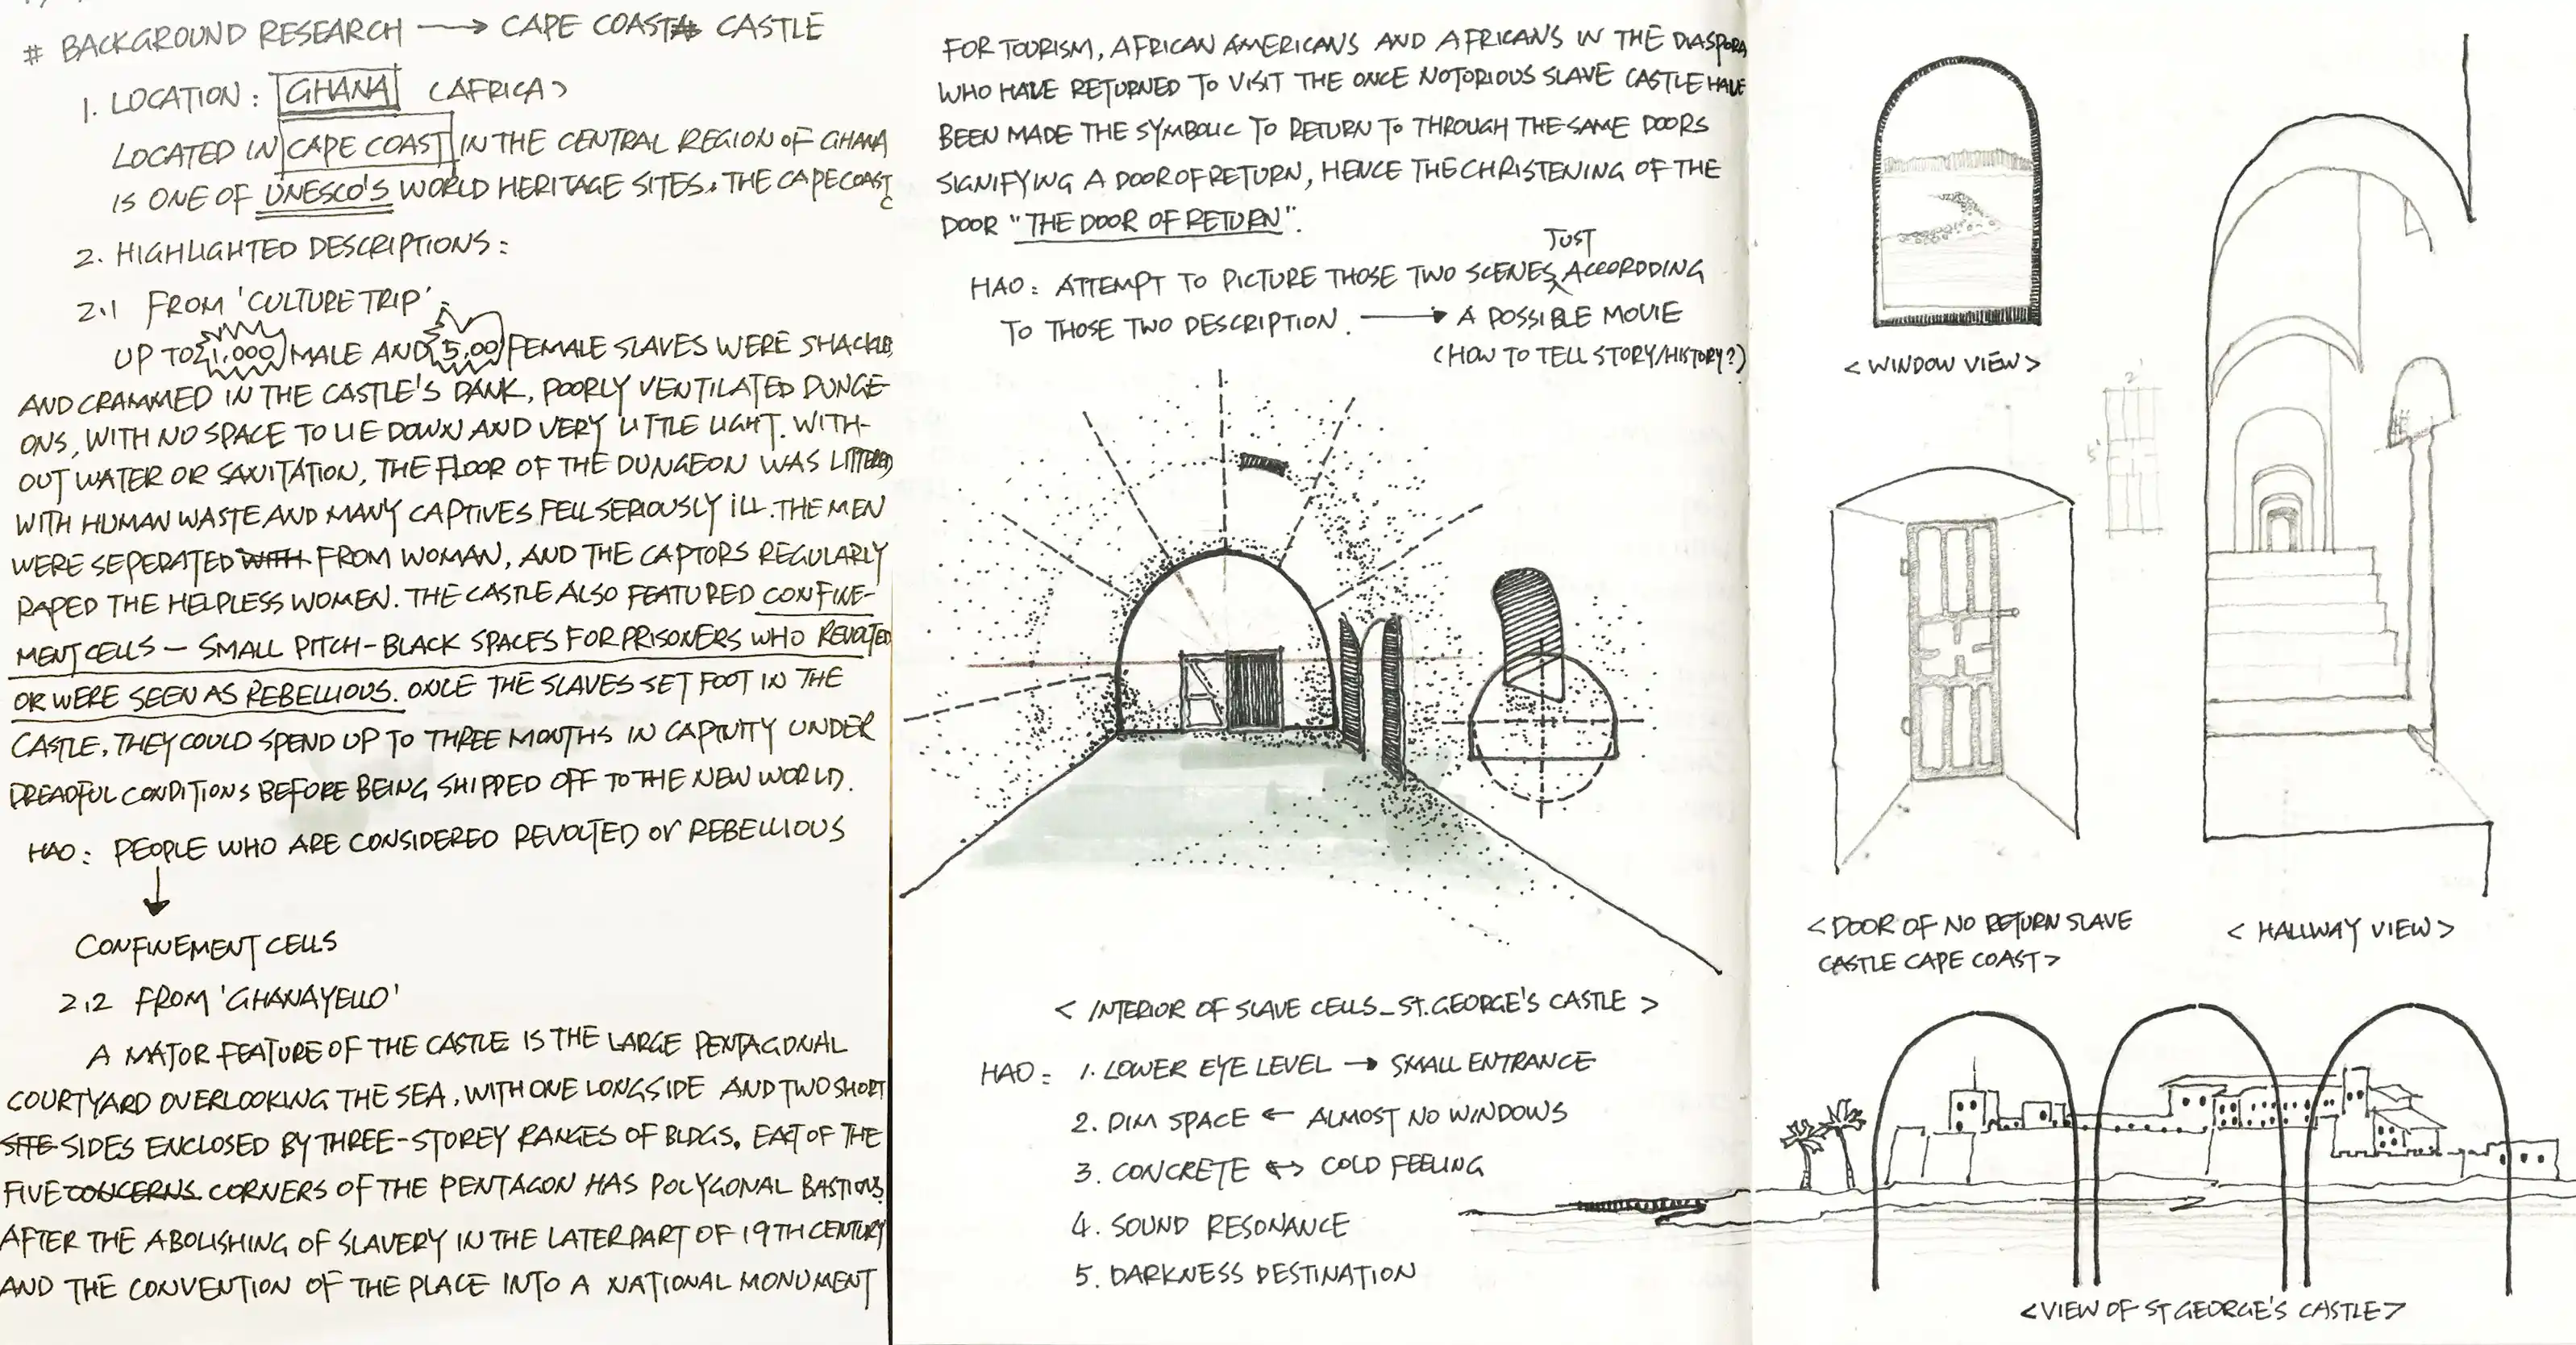 # BACKGROUND RESEARCH → CAPE COAST CASTLE
1. LOCATION: GHANA (AFRICA)
LOCATED IN CAPE COAST IN THE CENTRAL REGION OF GHANA
IS ONE OF UNESCO'S WORLD HERITAGE SITES. THE CAPE COAST C
2. HIGHLIGHTED DESCRIPTIONS:
2.1 FROM 'CULTURE TRIP'
UP TO 1,000 MALE AND 5,00 FEMALE SLAVES WERE SHACKLED
AND CRAMMED IN THE CASTLE'S DANK, POORLY VENTILATED DUNGE-
ONS, WITH NO SPACE TO LIE DOWN AND VERY LITTLE LIGHT. WITH-
OUT WATER OR SANITATION, THE FLOOR OF THE DUNGEON WAS LITTERED
WITH HUMAN WASTE AND MANY CAPTIVES FELL SERIOUSLY ILL. THE MEN
WERE SEPERATED WITH FROM WOMAN, AND THE CAPTORS REGULARLY
RAPED THE HELPLESS WOMEN. THE CASTLE ALSO FEATURED CONFINE-
MENT CELLS — SMALL PITCH-BLACK SPACES FOR PRISONERS WHO REVOLTED
OR WERE SEEN AS REBELLIOUS. ONCE THE SLAVES SET FOOT IN THE
CASTLE, THEY COULD SPEND UP TO THREE MONTHS IN CAPTIVITY UNDER
DREADFUL CONDITIONS BEFORE BEING SHIPPED OFF TO THE NEW WORLD.
HAO: PEOPLE WHO ARE CONSIDERED REVOLTED or REBELLIOUS
↓
CONFINEMENT CELLS
2.2 FROM 'GHANAYELLO'
A MAJOR FEATURE OF THE CASTLE IS THE LARGE PENTAGONAL
COURTYARD OVERLOOKING THE SEA, WITH ONE LONG SIDE AND TWO SHORT
SITE SIDES ENCLOSED BY THREE-STOREY RANGES OF BLDGS. EACT OF THE
FIVE CONCERNS CORNERS OF THE PENTAGON HAS POLYGONAL BASTIONS.
AFTER THE ABOLISHING OF SLAVERY IN THE LATER PART OF 19TH CENTURY
AND THE CONVENTION OF THE PLACE INTO A NATIONAL MONUMENT
FOR TOURISM, AFRICAN AMERICANS AND AFRICANS IN THE DIASPORA
WHO HAVE RETURNED TO VISIT THE ONCE NOTORIOUS SLAVE CASTLE HAVE
BEEN MADE THE SYMBOLIC TO RETURN TO THROUGH THE SAME DOORS
SIGNIFYING A DOOR OF RETURN, HENCE THE CHRISTENING OF THE
DOOR "THE DOOR OF RETURN".
HAO: ATTEMPT TO PICTURE THOSE TWO SCENES JUST ACCORODING
TO THOSE TWO DESCRIPTION. → A POSSIBLE MOVIE
(HOW TO TELL STORY/HISTORY?)
< INTERIOR OF SLAVE CELLS_ST.GEORGE'S CASTLE >
HAO: 1. LOWER EYE LEVEL → SMALL ENTRANCE
2. DIM SPACE ← ALMOST NO WINDOWS
3. CONCRETE ↔ COLD FEELING
4. SOUND RESONANCE
5. DARKNESS DESTINATION
< WINDOW VIEW >
2'
5'
< DOOR OF NO RETURN SLAVE
CASTLE CAPE COAST >
< HALLWAY VIEW >
<VIEW OF ST GEORGE'S CASTLE>